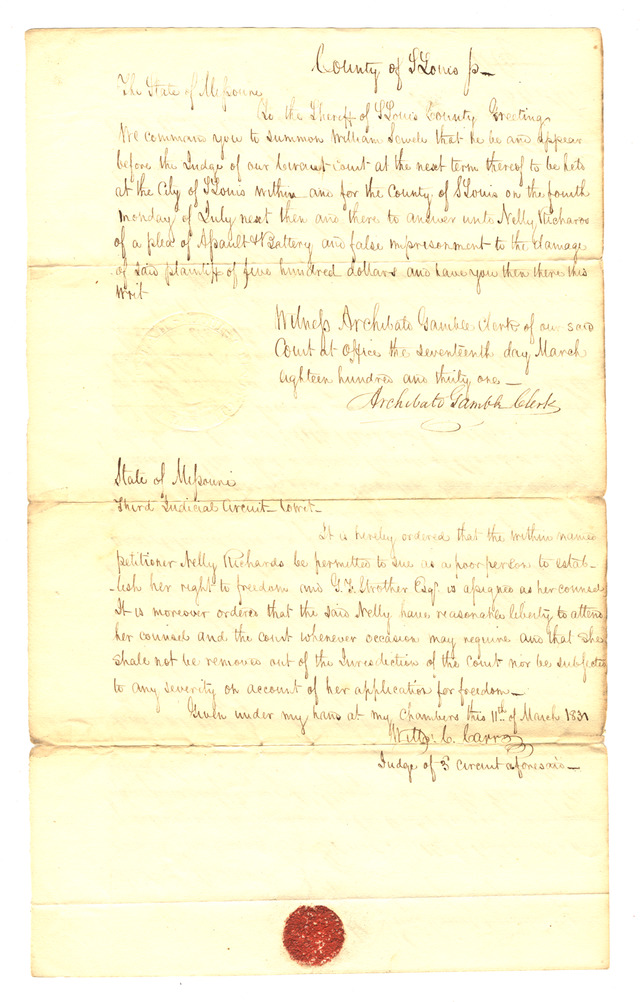 County of St Louis ss
The State of Missouri
To the Sheriff of St Louis County Greeting
We command you to summon William Sewell that he be and appear
before the Judge of our Circuit court at the next term thereof to be held
at the City of St Louis within and for the County of St Louis on the fourth
monday of July next then and there to answer unto Nelly Richards
of a plea of Assault & Battery and false imprisonment to the damage
of said plaintiff of five hundred dollars and have you then there this
Writ
Witness Archibald Gamble Clerk of our said
Court at office the seventeenth day March
eighteen hundred and thirty one
Archibald Gamble Clerk
State of Missouri
Third Judicial Circuit
It is hereby ordered that the within named
petitioner Nelly Richards be permitted to sue as a poor person to estab-
-lish her right to freedom and G. F. Strother Esqr is assigned as her counsel
It is moreover ordered that the said Nelly have reasonable liberty to attend
her counsel and the court whenever occasion may require and that she
shall not be removed out of the Jurisdiction of the court nor be subjected
to any severity on account of her application for freedom
Given under my hand at my Chambers this 11th of March 1831
Will: C. Carr
Judge of 3 circuit aforesaid